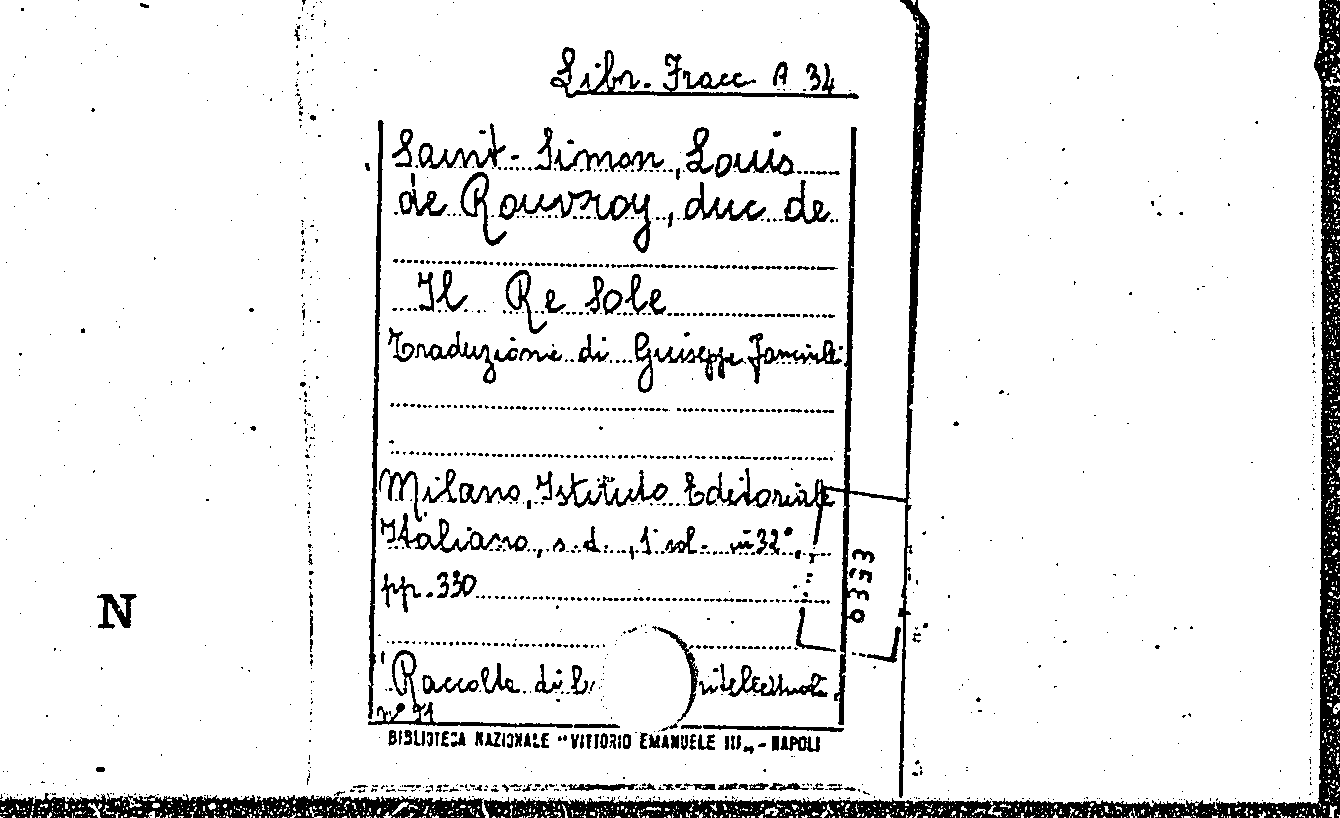 Libr. Fracc A 34
Saint-Simon, Louis
de Rouvroy, duc de
Il Re Sole
Traduzione di Giuseppe
Milano, Istituto Editoriale
Italiano, s.d., 1 vol. in 32°,
pp. 330
0393
N
"Raccolta di b
n° 71
BIBLIOTECA NAZIONALE "VITTORIO EMANUELE III„ - NAPOLI